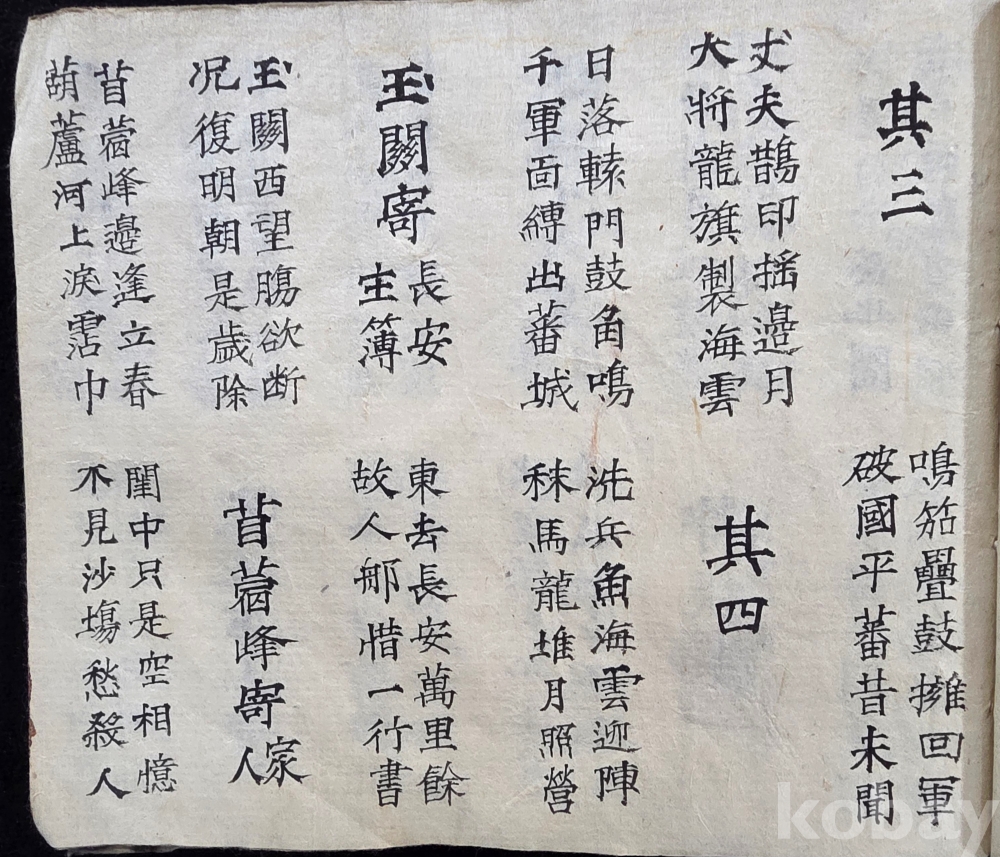 其三
鳴笳疊鼓擁回軍
破國平蕃昔未聞
丈夫鵲印搖邊月
大將龍旗製海雲
其四
日落轅門鼓角鳴
千軍面縛出蕃城
洗兵魚海雲迎陣
秣馬龍堆月照營
玉關寄長安主簿
東去長安萬里餘
故人那惜一行書
玉關西望腸欲断
况復明朝是歲除
苜蓿峰寄家人
苜蓿峰邊逢立春
葫蘆河上淚霑巾
閨中只是空相憶
不見沙塲愁殺人
kobay